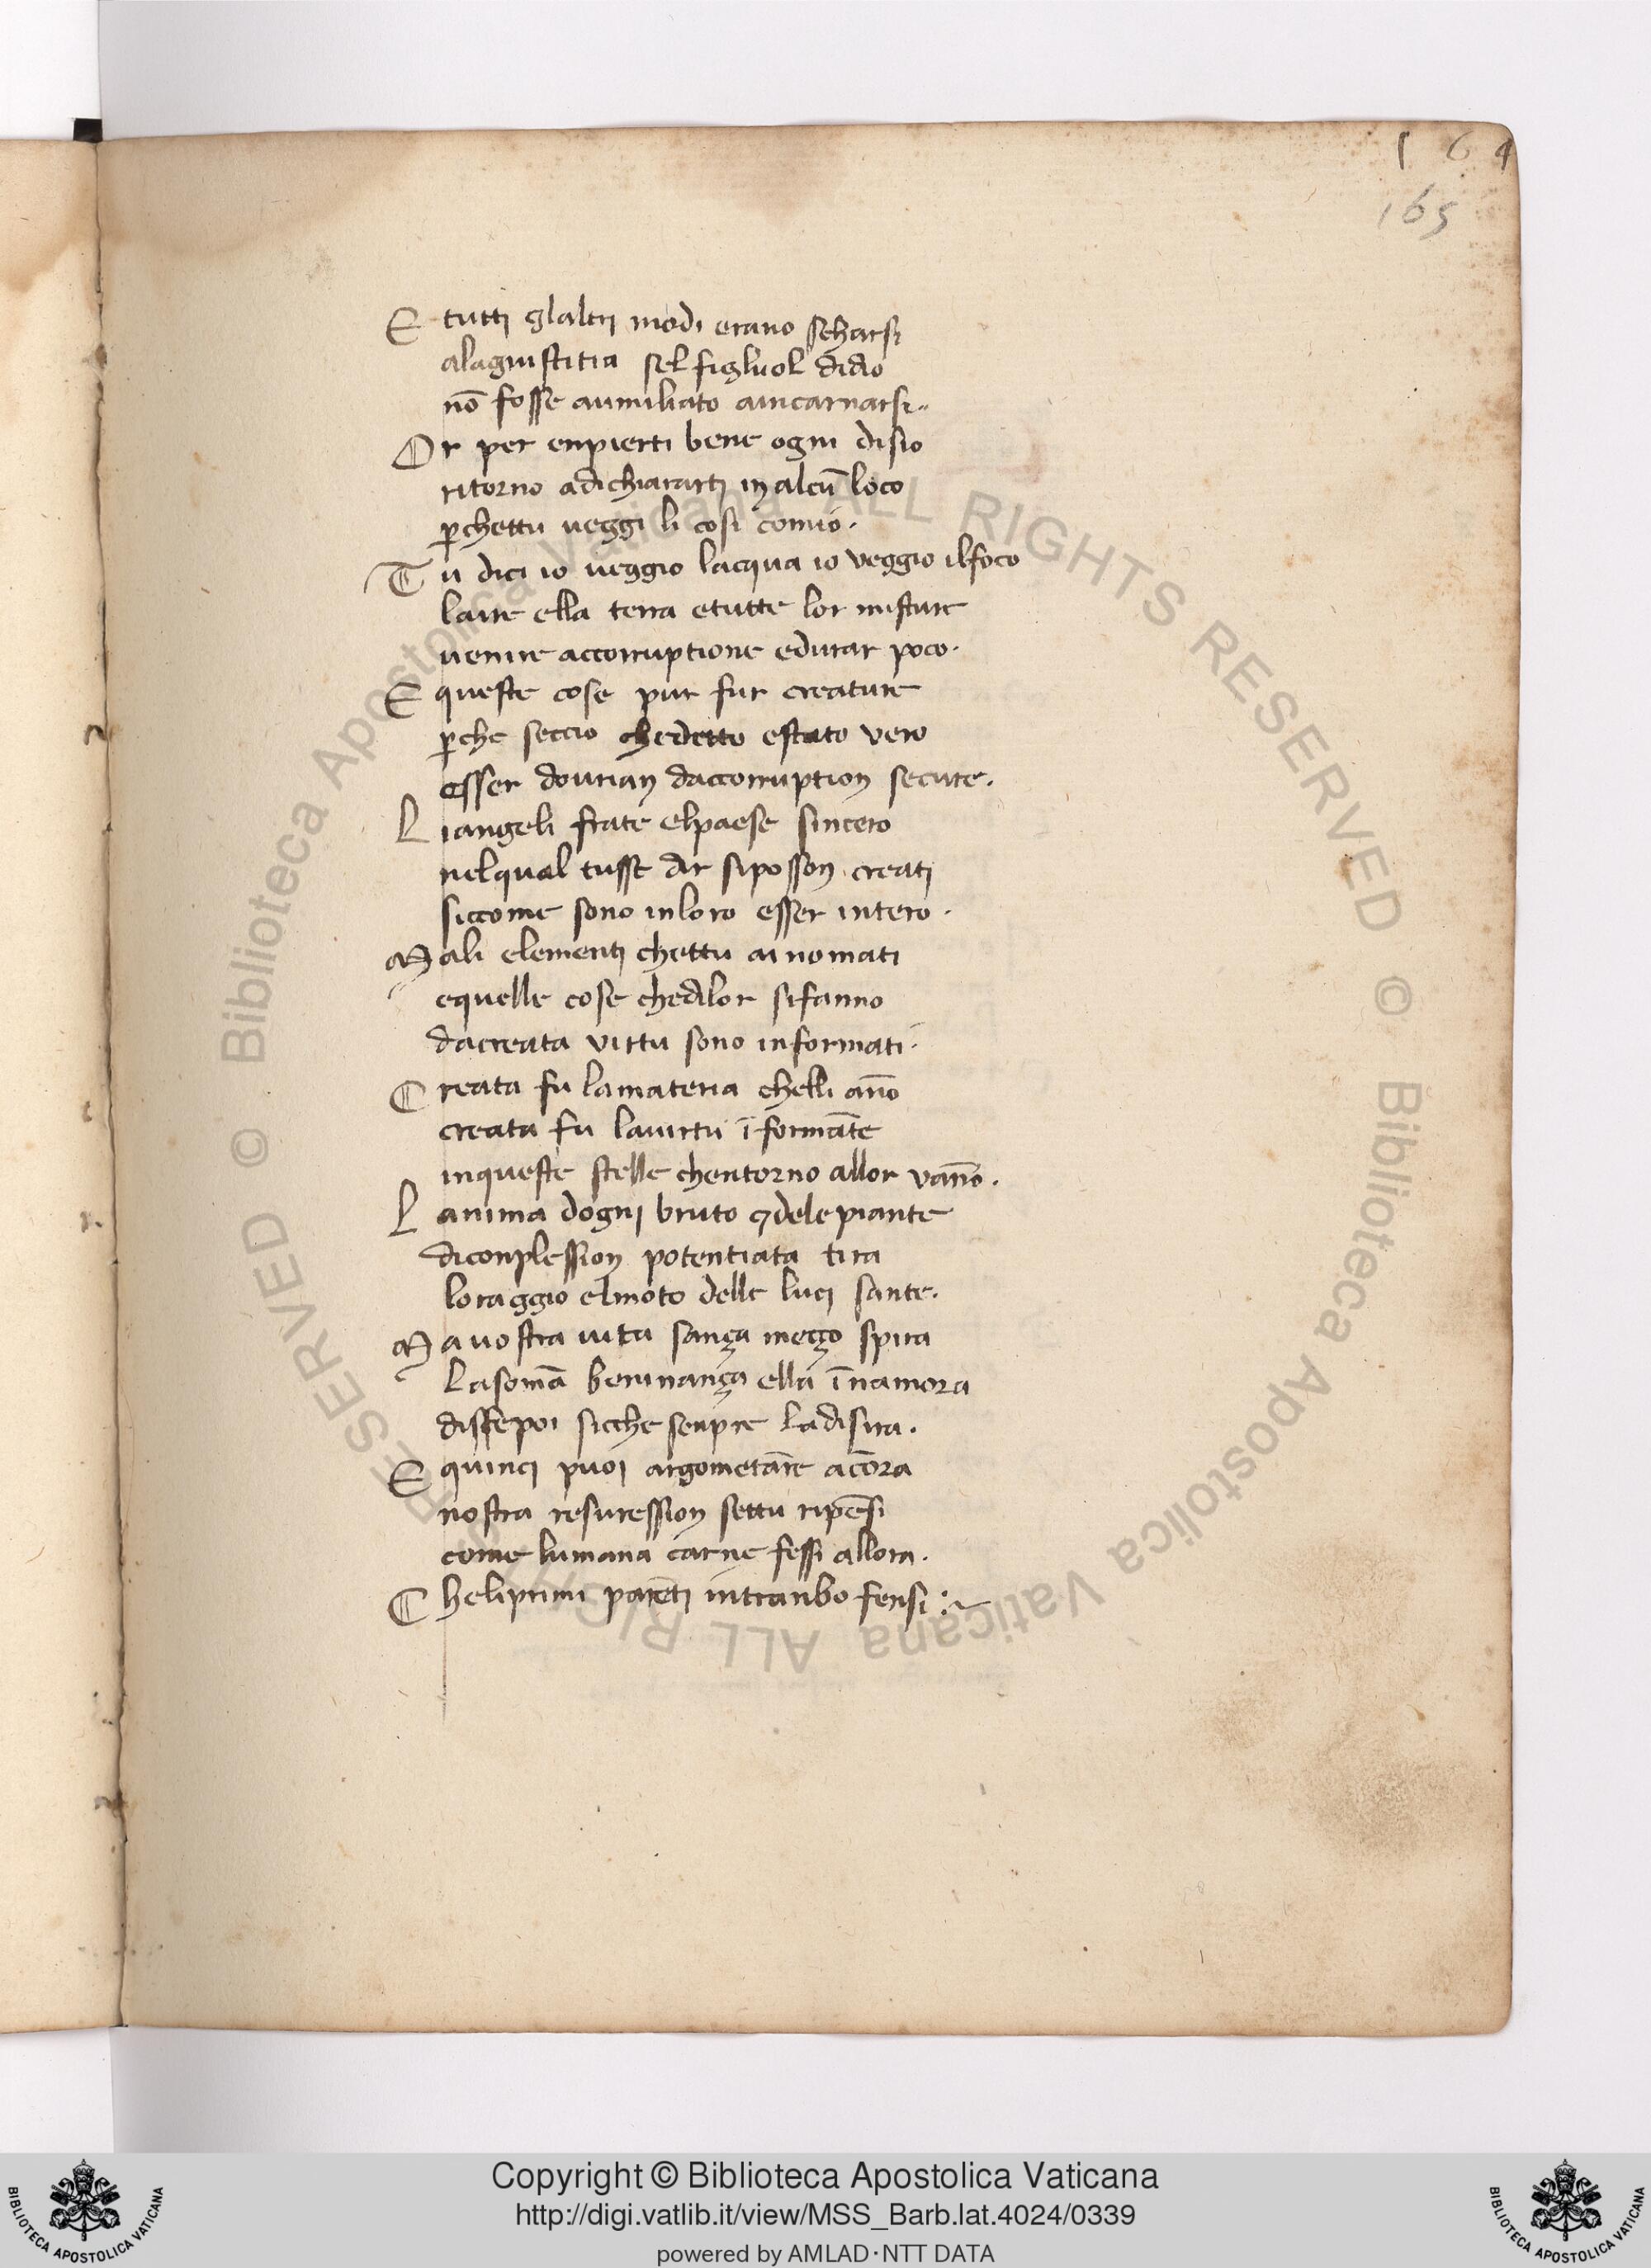 164
165
E tutti glaltri modi erano scharsi
alagiustitia sel figluol didio
nō fosse aumiliato aincarnarsi..
Or per enpierti bene ogni disio
ritorno adichiararti in alcū loco
ꝑchettu ueggi li cosi comio.
Tu dici io ueggio lacqua io veggio ilfoco
laire ella terra etutte lor misture
uenire accorruptione edurar poco.
E queste cose pur fur creature
ꝑche seccio chedetto estato vero
esser dourian daccorruption secure.
Liangeli frate elpaese sincero
nelqual tusse dir siposson creati
siccome sono inloro esser intero.
Mali elementi chettu ai nomati
equelle cose chedilor sifanno
dacreata virtu sono informati.
Creata fu lamateria chelli anō
creata fu lauirtu īformāte
inqueste stelle chentorno allor vanō.
Lanima dogni bruto ⁊ dele piante
diconplession potentiata tira
loraggio elmoto delle luci sante.
Mauostra uita sança meçço spira
Lasomā beninança ella īnamora
dissepoi sicche senpre ladisira.
E quinci puoi argometāre acōra
nostra resuression settu ripēsi
come lumana carne fessi allora.
Cheliprimi parēti intranbo fensi :~
Copyright © Biblioteca Apostolica Vaticana
http://digi.vatlib.it/view/MSS_Barb.lat.4024/0339
powered by AMLAD·NTT DATA
BIBLIOTECA APOSTOLICA VATICANA
BIBLIOTECA APOSTOLICA VATICANA
© Biblioteca Apostolica Vaticana ALL RIGHTS RESERVED © Biblioteca Apostolica Vaticana ALL RIGHTS RESERVED